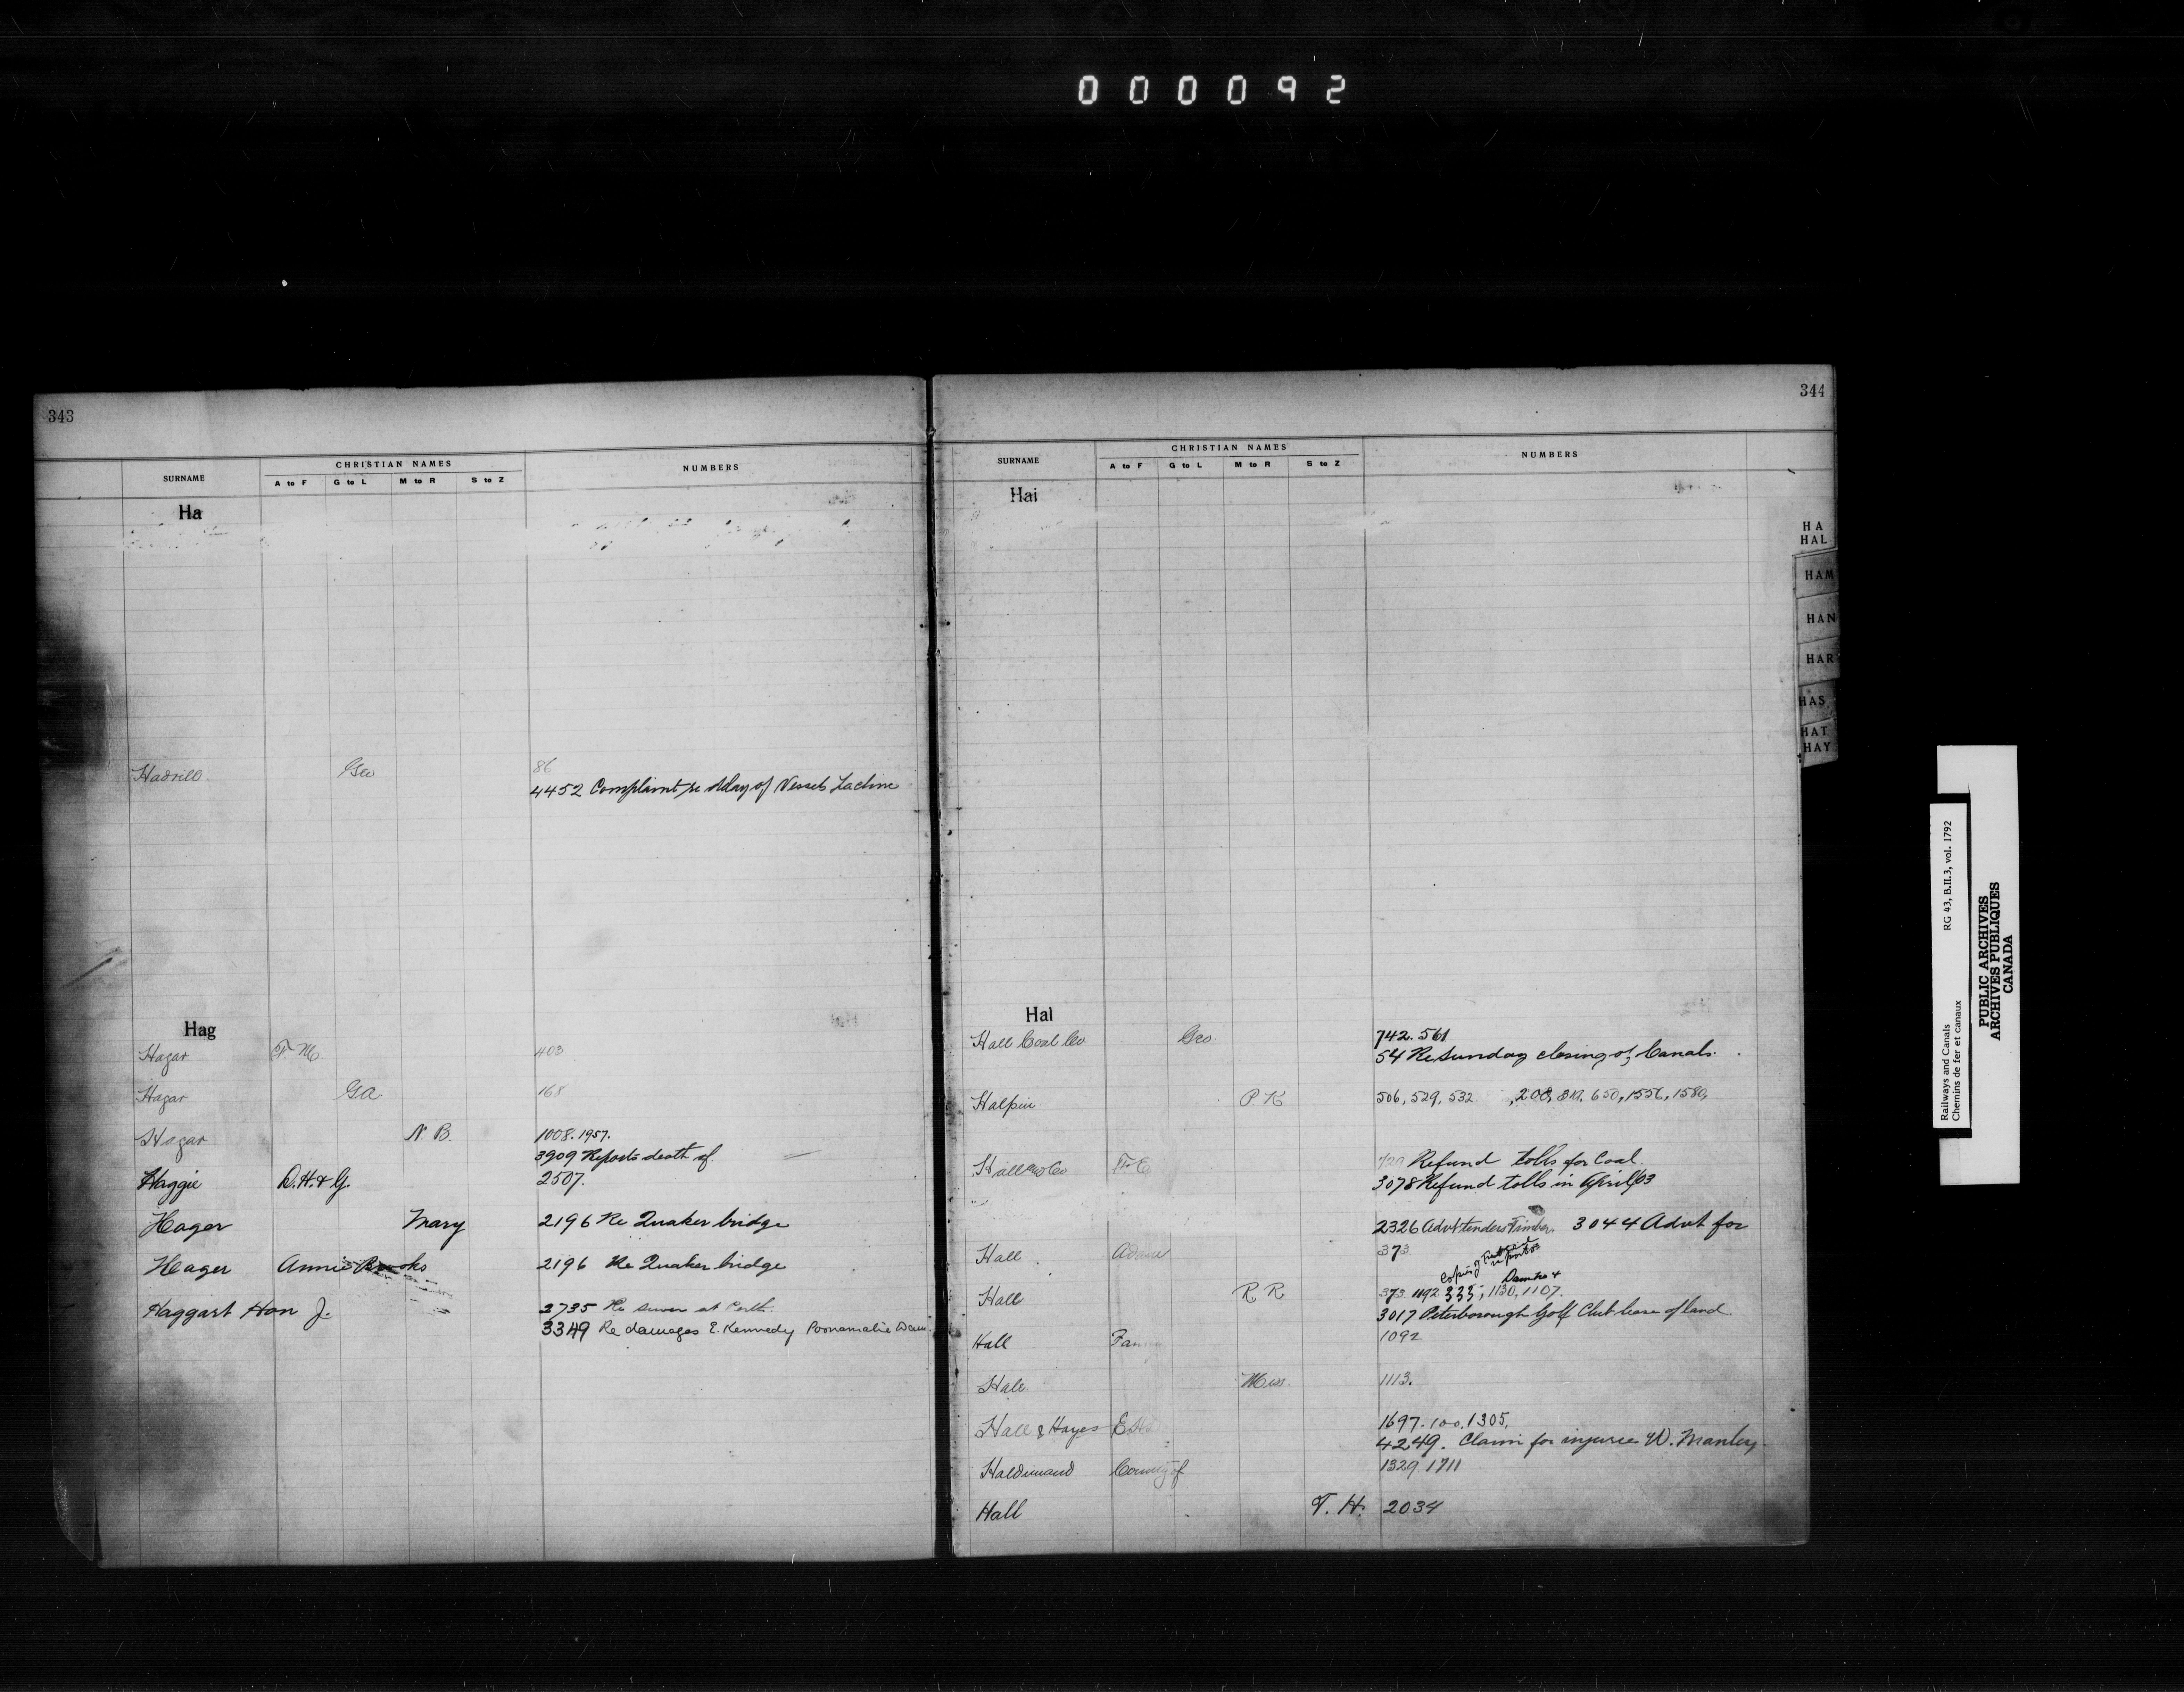 000092
343
SURNAME CHRISTIAN NAMES NUMBERS
A to F G to L M to R S to Z
Ha
Hadrill Geo 86
4452 Complaint re delay of Vessels Lachine
Hag
Hagar F. M. 403
Hagar G A 168
Hagar N. B. 1008. 1957.
3909 Reports death of
Haggie D. H. & G. 2507.
Hager Mary 2196 Re Quaker bridge
Hager Annie Brooks 2196 Re Quaker bridge
Haggart Hon J. 2735 Re sewer at Perth.
3349 Re damages E. Kennedy Poonamalie Dam.
344
SURNAME CHRISTIAN NAMES NUMBERS
A to F G to L M to R S to Z
Hai
Hal
Hall Coal Co Geo. 742. 561
54 Re Sunday closing of Canals.
Halpin P K 506, 529, 532, 208, 650, 1556, 1580,
Hall & Co F. E. Refund tolls for Coal.
3078 Refund tolls in April/03
2326 Advt tenders Timber. 3044 Advt for
Hall Adam 373
Copies of
Hall R R 373 1192 333, 1130, 1107.
3017 Peterborough Golf Club lease of land
Hall Fanny 1092
Hale 1113.
Hall & Hayes 1697. 100. 1305.
4249. Claim for injuries W. Manley.
Haldimand County of 1329 1711
Hall T. H. 2034
HA
HAL
HAM
HAN
HAR
HAS
HAT
HAY
Railways and Canals RG 43, B.II.3, vol. 1792
Chemins de fer et canaux
PUBLIC ARCHIVES
ARCHIVES PUBLIQUES
CANADA